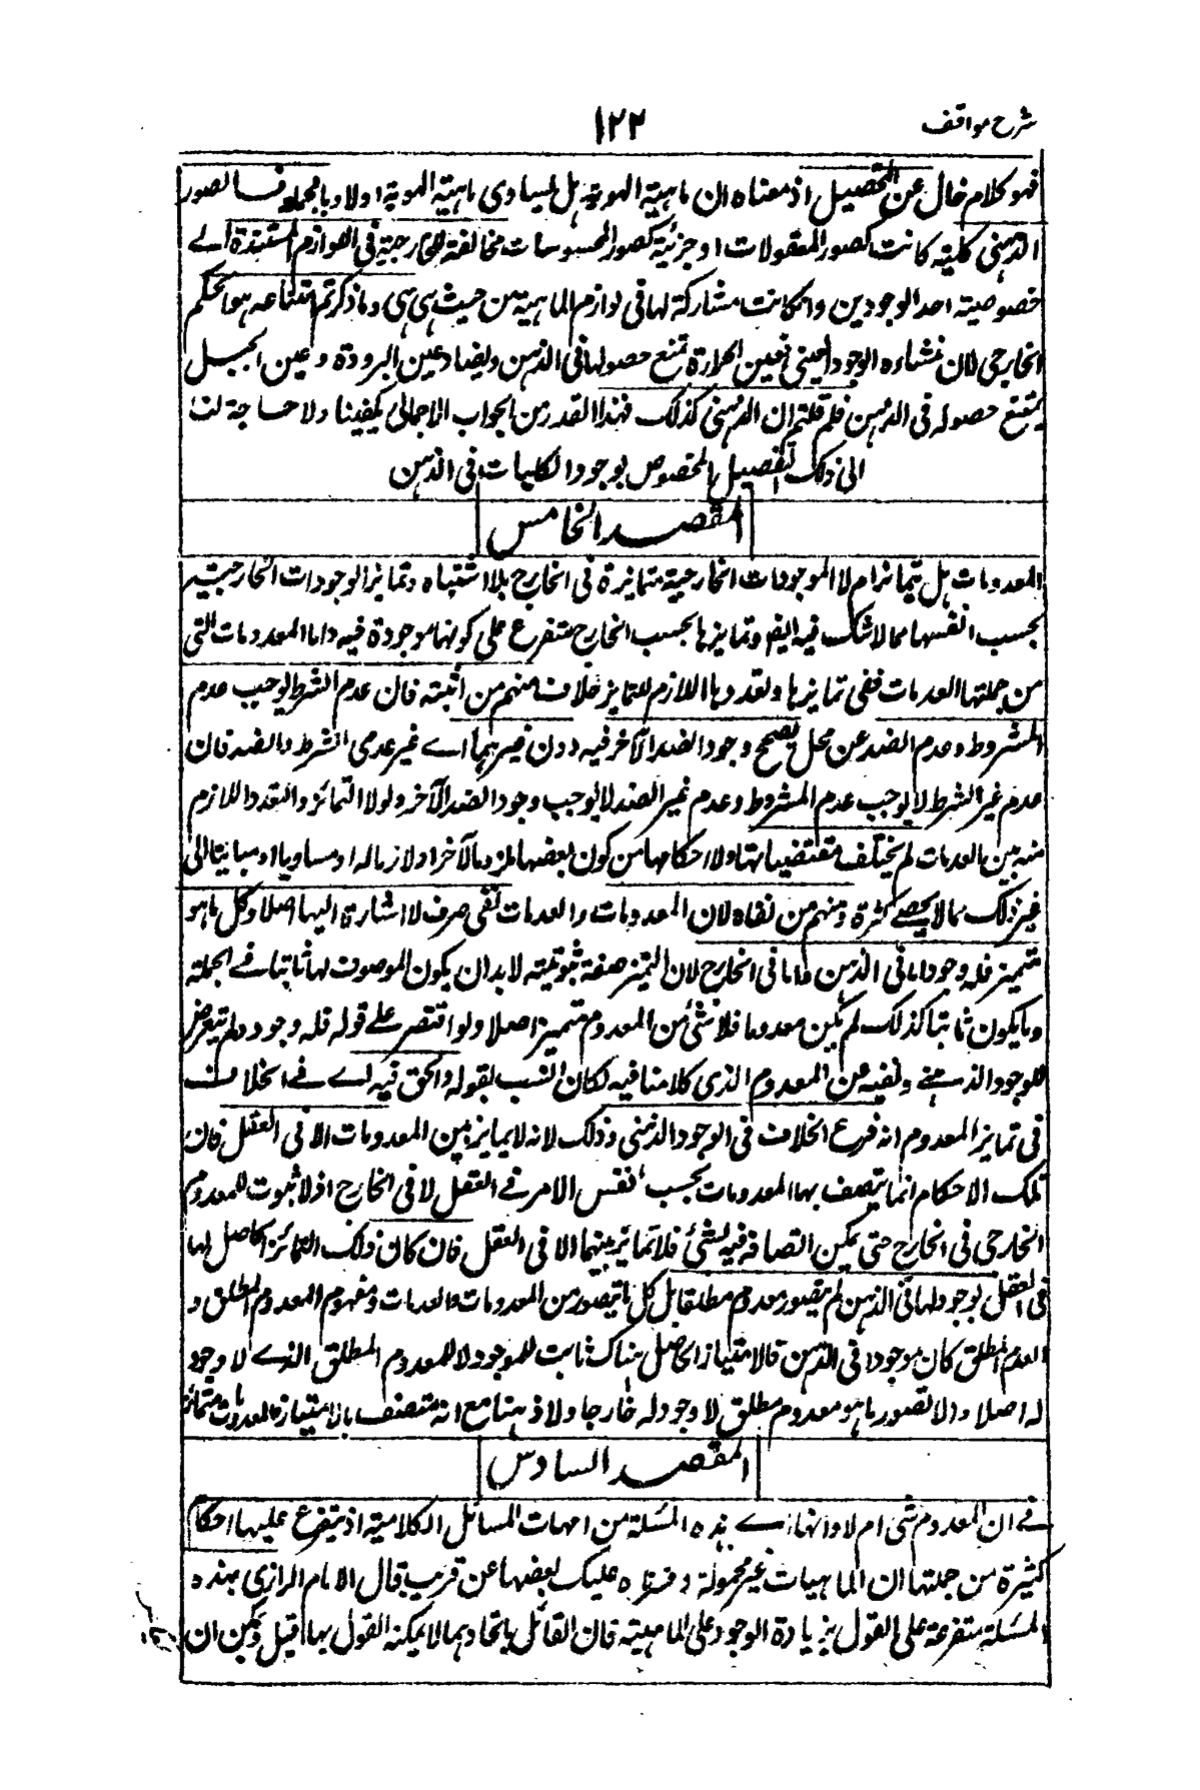 شرح مواقف
١٢٢
فهو كلام خال عن التحصيل اذ معناه ان ماهية الهوية هل يساوى ماهية الهوية اولا وبالجملة فالصور
الذهنى كلية كانت كصور المعقولات او جزئية كصور المحسوسات مخالفة للخارجية فى اللوازم المستندة الے
خصوصية احد الوجودين وان كانت مشاركة لها فى لوازم الماهية من حيث هى هى وما ذكرتم امتناعه هو الحكم
الخارجى لان منشاءه الوجود العينى فعين الحرارة تمنع حصولها فى الذهن ويضاد عين البرودة وعين الجبل
يمتنع حصوله فى الذهن فلم قلتم ان الذهنى كذلك فهذا القدر من الجواب الاجمالى يكفينا ولا حاجة لنا
الى ذلك التفصيل المخصوص بوجود الكليات فى الذهن
المقصد الخامس
المعدومات هل يتمايز ام لا الموجودات الخارجية متمايزة فى الخارج بلا اشتباه وتمايز الوجودات الخارجية
بحسب انفسها مما لا شك فيه ايضا وتمايزها بحسب الخارج متفرع على كونها موجودة فيه واما المعدومات التى
من جملتها العدمات ففى تمايزها وتعددها اللازم للتمايز خلاف منهم من اثبته فان عدم الشرط يوجب عدم
المشروط وعدم الضد عن محل يصحح وجود الضد الآخر فيه دون غيرهما اے غير عدمى الشرط والضد فان
عدم غير الشرط لا يوجب عدم المشروط وعدم غير الضد لا يوجب وجود الضد الآخر ولولا التمائز والتعدد اللازم
منه بين العدمات لم يختلف مقتضياتها ولا احكامها من كون بعضها ملزوما لآخر او لازما له او مساويا او مباينا الى
غير ذلك مما لا يحصے كثرة ومنهم من نفاه لان المعدومات والعدمات نفى صرف لا اشارة اليها اصلا وكل ما هو
متميز فله وجود اما فى الذهن واما فى الخارج لان التميز صفة ثبوتية لا بد ان يكون الموصوف بها ثابتا فے الجملة
وما يكون ثابتا كذلك لم يكن معدوما فلا شئ من المعدوم متميز اصلا ولو اقتصر علے قوله فله وجود ولم يتعرض
للوجود الذهنے ونفيه عن المعدوم الذى كلامنا فيه لكان انسب بقوله والحق فيه اے فے الخلاف
فى تمايز المعدوم انه فرع الخلاف فى الوجود الذهنى وذلك لانه لا يمايز بين المعدومات الا فى العقل فان
تلك الاحكام انما يتصف بها المعدومات بحسب نفس الامر فے العقل لا فى الخارج اذ لا ثبوت للمعدوم
الخارجى فى الخارج حتى يمكن اتصافه فيه بشئ فلا تمايز بينهما الا فى العقل فان كان ذلك التمائز الحاصل لها
فى العقل بوجود لها فى الذهن لم يتصور معدوم مطلقا بل كل ما يتصور من المعدومات والعدمات ومفهوم المعدوم المطلق و
العدم المطلق كان موجودا فى الذهن فالامتياز الحاصل هناك ثابت للموجود لا للمعدوم المطلق الذے لا وجود
له اصلا والا تصور ما هو معدوم مطلق لا وجود له خارجا ولا ذهنا مع انه متصف بالامتياز فالمعدومات متمائز
المقصد السادس
فے ان المعدوم شئ ام لا وانها اے هذه المسئلة من امهات المسائل الكلامية اذ يتفرع عليها احكام
كثيرة من جملتها ان الماهيات غير مجعولة وسترد عليك بعضها عن قريب قال الامام الرازى هذه
المسئلة متفرعة على القول بزيادة الوجود على الماهية فان القائل باتحادهما لا يمكنه القول بها قيل ويمكن ان